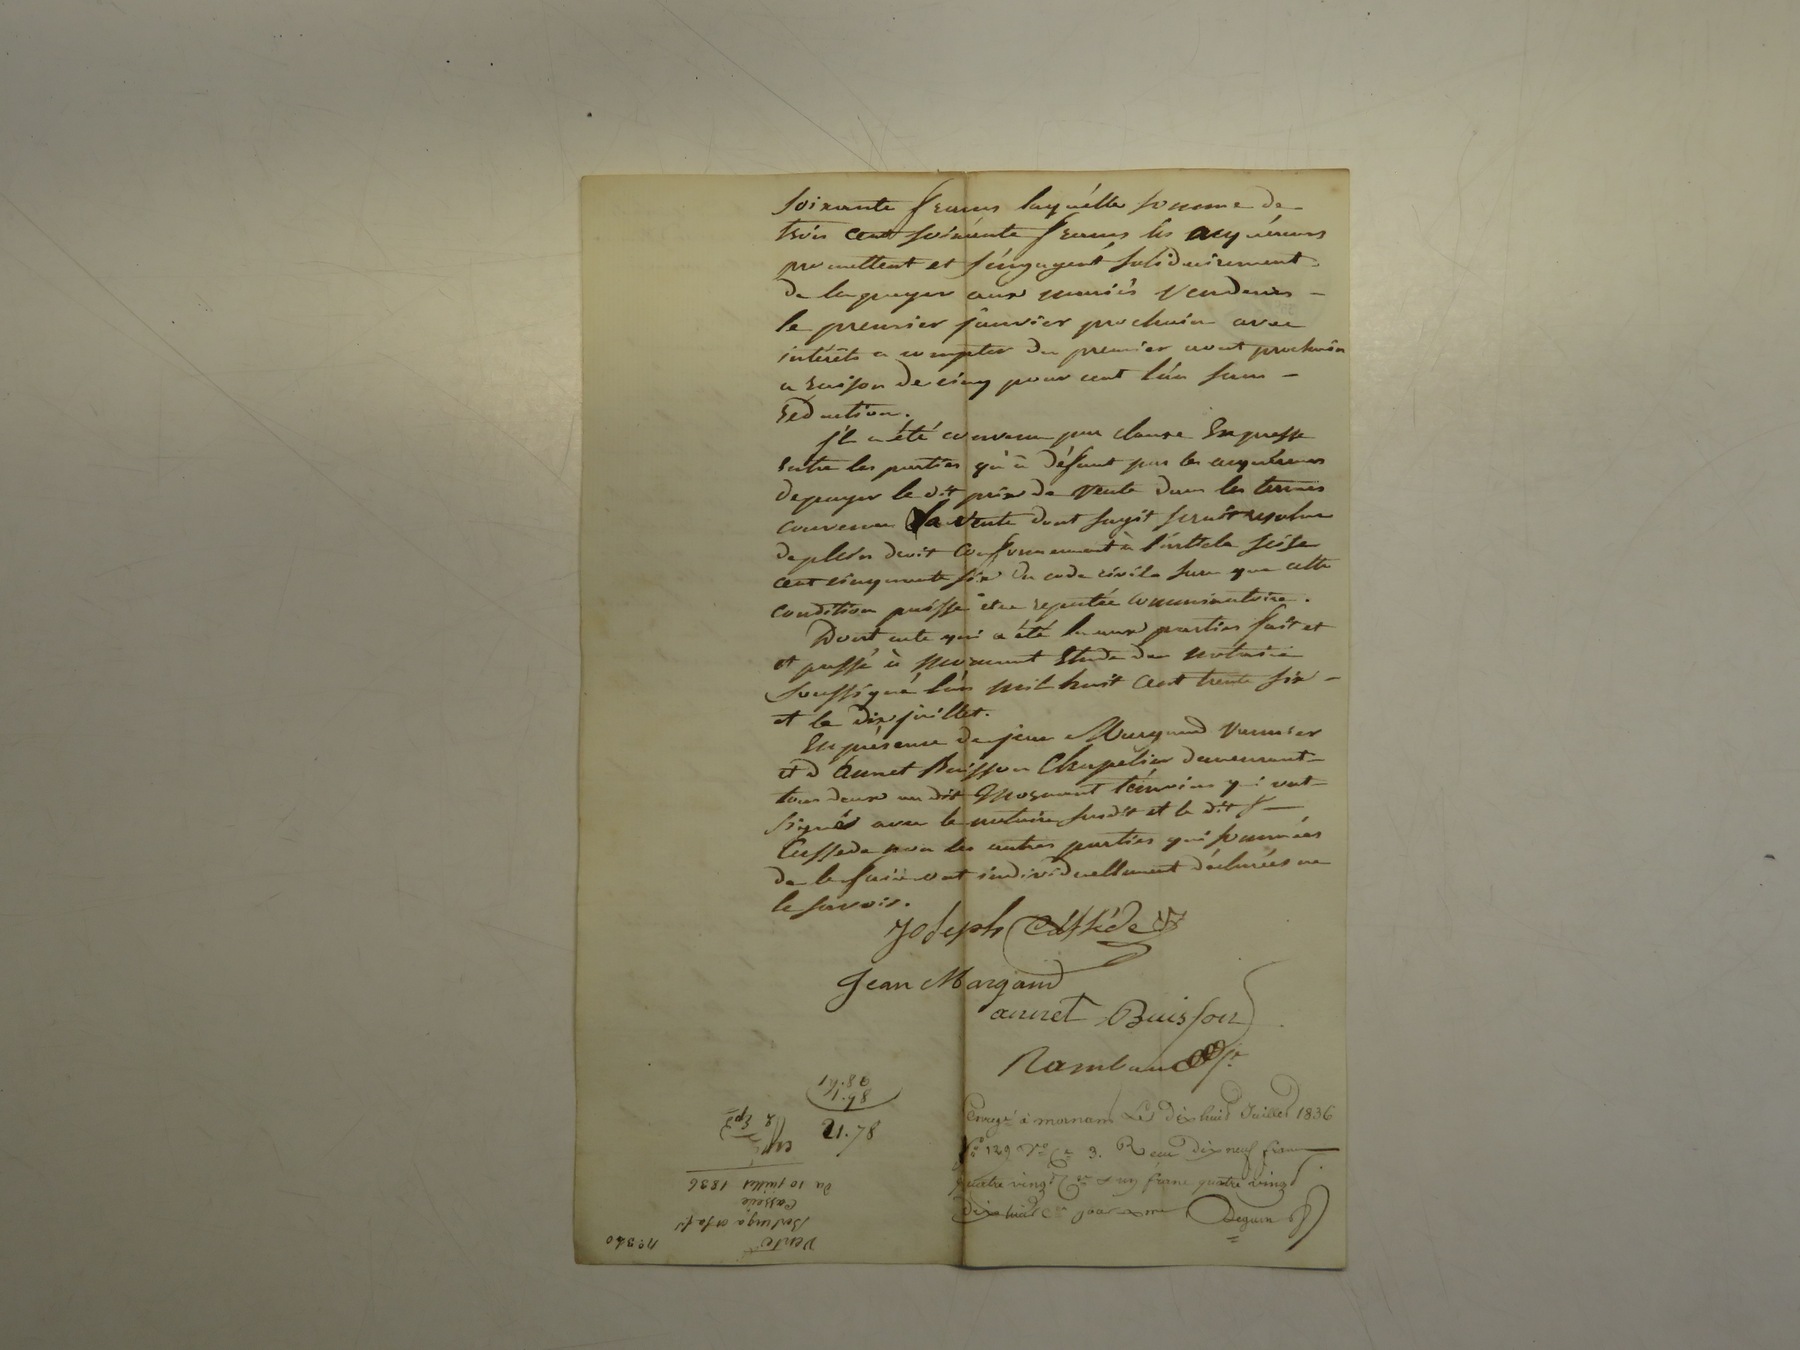 soixante francs laquelle somme de
trois cent soixante francs les acquéreurs
promettent et s'engagent solidairement
de la payer aux mariés vendeurs
le premier janvier prochain avec
intérêts a compter du premier aout prochain
a raison de cinq pour cent l'an sans
réduction.
Il a été convenu par clause expresse
entre les parties qu'à défaut par les acquéreurs
de payer le dit prix de vente dans les termes
convenus la vente dont s'agit serait resolue
de plein droit conformement à l'article seize
cent cinquante six du code civile sans que cette
condition puisse être reputée comminatoire.
Dont acte qui a été lu aux parties fait et
et passé à Mornant Etude du notaire
soussigné l'an mil huit cent trente six
et le dix juillet.
En présence de jean Margand
et d'annet Buisson Chapelier demeurant
tous deux au dit Mornant témoins qui ont
signés avec le notaire susdit et le dit s
Cassede non les autres parties qui sommées
de le faire ont individuellement déclarées ne
le savoir.
Joseph Cassède
Jean Margand
annet Buisson
Rambaud
Enregé à mornant Le dix huit Juillet 1836
fo 129 Vo Ce 3. Reçu dix neuf francs
quatre vingt Ces & un franc quatre vingt
dix huit Ces pour xme Deguin
98.41
84.1
21.78
du 10 juillet 1836
Cassede
Vente
no 340